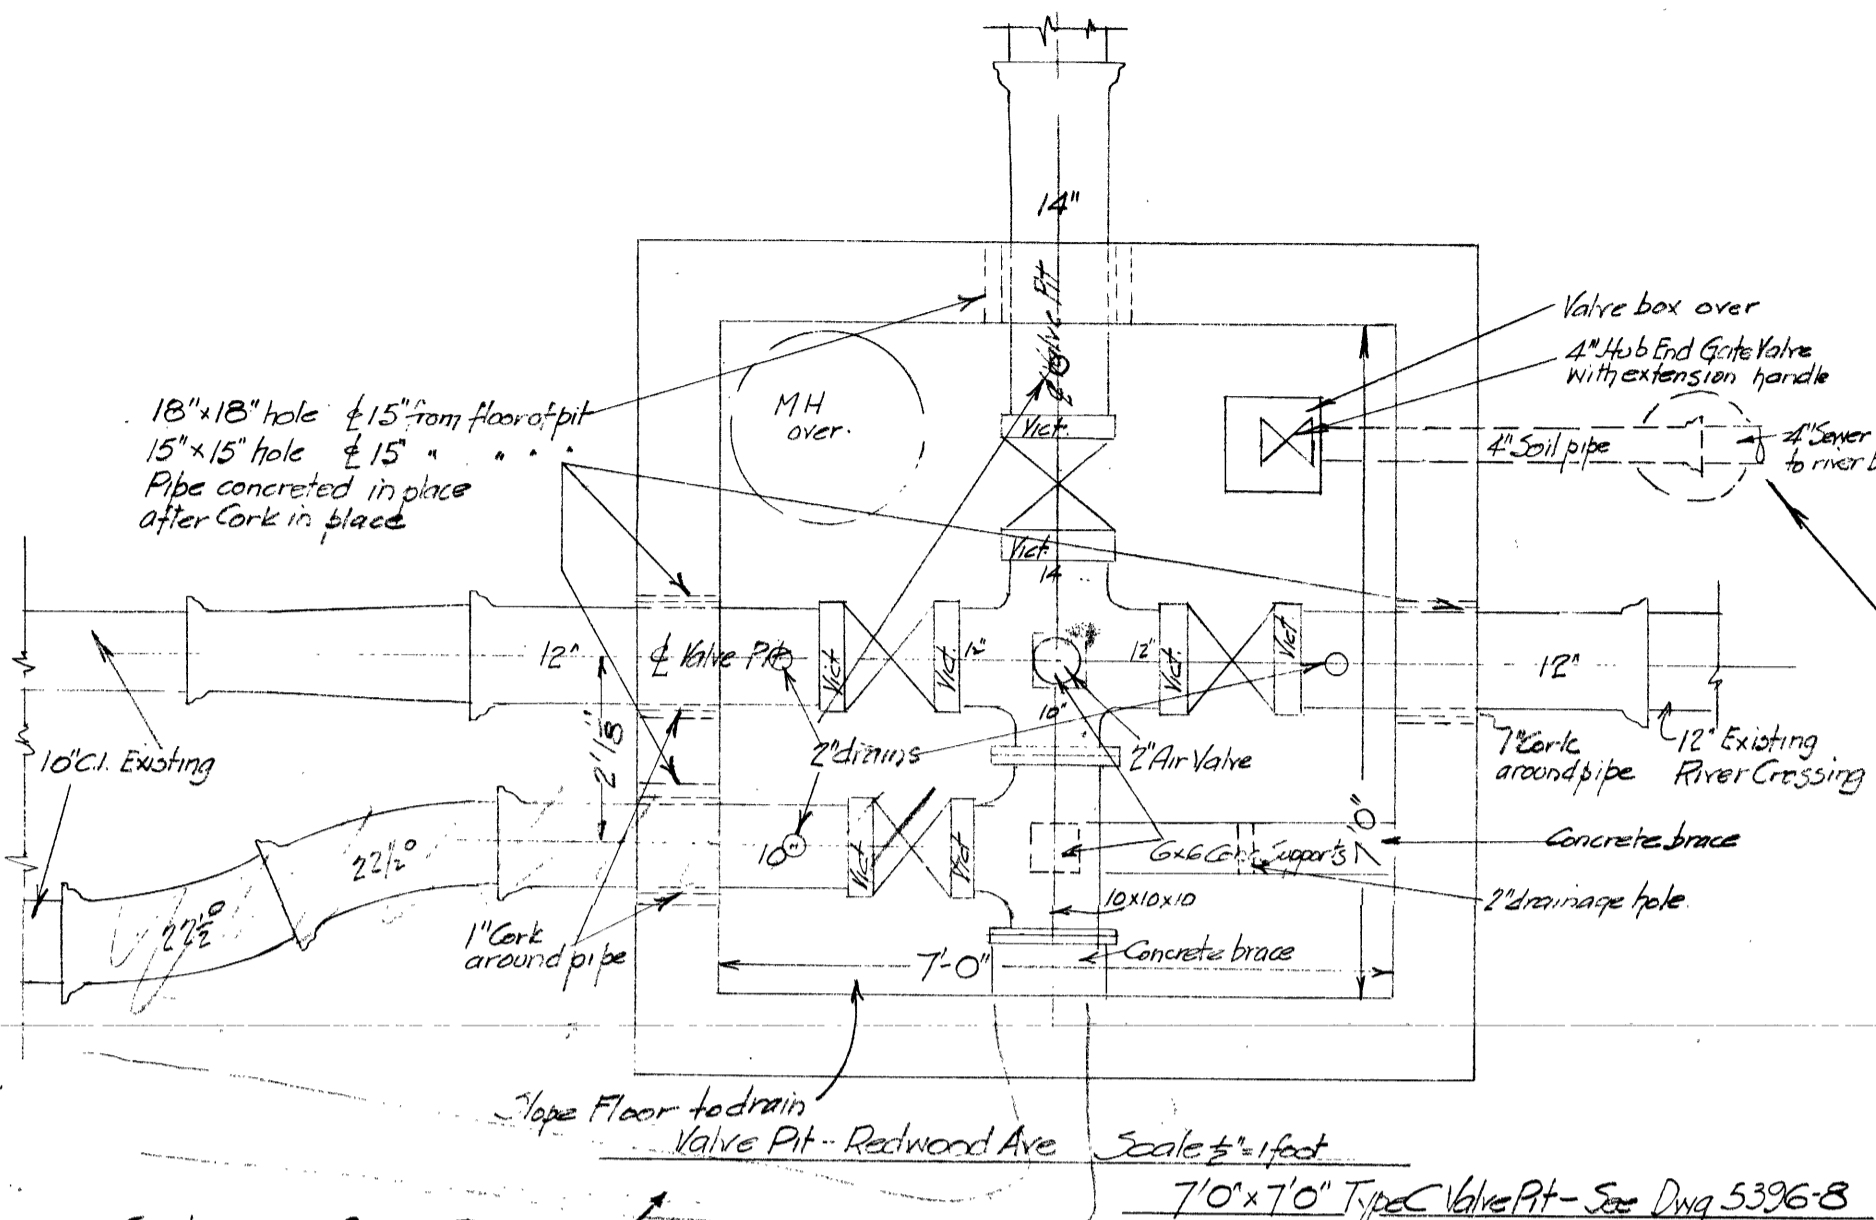 14"
℄ Valve Pit
Valve box over
4" Hub End Gate Valve
with extension handle
MH
over.
18"x18" hole ℄ 15" from floor of pit
15"x15" hole ℄ 15" " " " "
Pipe concreted in place
after Cork in place
Vict.
4" Soil pipe
4" Sewer
to river
Vict.
14
12"
℄ Valve Pit
Vict.
Vict.
12"
12"
Vict.
Vict.
12"
10"
10" C.I. Existing
2'1⅛"
2" drains
2" Air Valve
1" Cork
around pipe
12" Existing
River Crossing
22½°
22½°
10"
Vict
Vict
6x6 Conc. Supports
7'0"
Concrete brace
10x10x10
2" drainage hole.
1" Cork
around pipe
7'-0"
Concrete brace
Slope Floor to drain
Valve Pit - Redwood Ave Scale ½"=1 foot
7'0"x7'0" Type C Valve Pit - See Dwg 5396-8